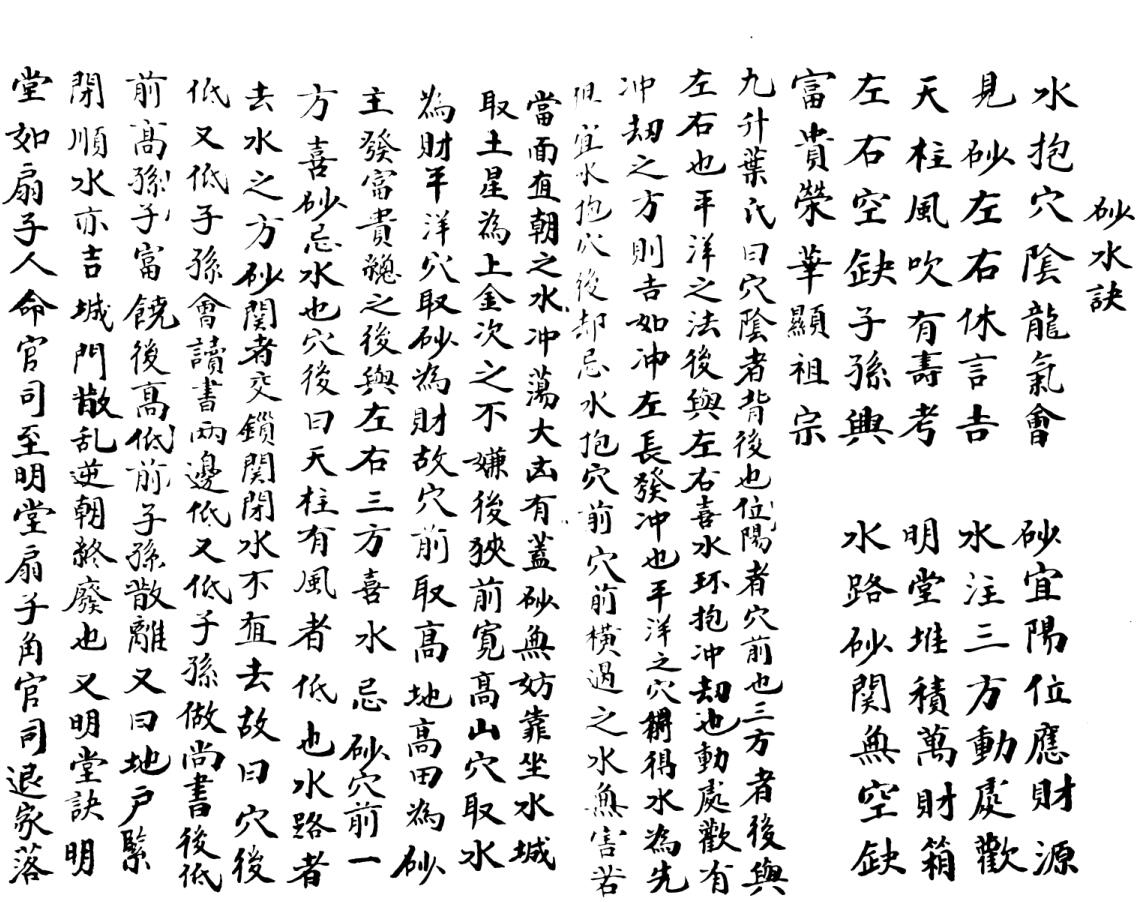 砂水訣
水抱穴陰龍氣會　砂宜陽位應財源
見砂左右休言吉　水注三方動處歡
天柱風吹有壽考　明堂堆積萬財箱
左右空缺子孫興　水路砂関無空缺
富貴榮華顯祖宗
九升葉氏曰穴陰者背後也位陽者穴前也三方者後與
左右也平洋之法後與左右喜水环抱冲刼也動處歡有
冲刼之方則吉如冲左長發冲也平洋之穴得水為先
但宜水抱穴後却忌水抱穴前穴前橫過之水無害若
當面直朝之水冲蕩大凶有蓋砂無妨靠坐水城
取土星為上金次之不嫌後狹前寬高山穴取水
為財平洋穴取砂為財故穴前取高地高田為砂
主發富貴穴之後與左右三方喜水忌砂穴前一
方喜砂忌水也穴後曰天柱有風者低也水路者
去水之方砂関者交鎖関閉水不直去故曰穴後
低又低子孫會讀書兩邊低又低子孫做尚書後低
前高孫子富饒後高低前子孫散離又曰地户緊
閉順水亦吉城門散乱逆朝終廢也又明堂訣明
堂如扇子人命官司至明堂扇子角官司退家落